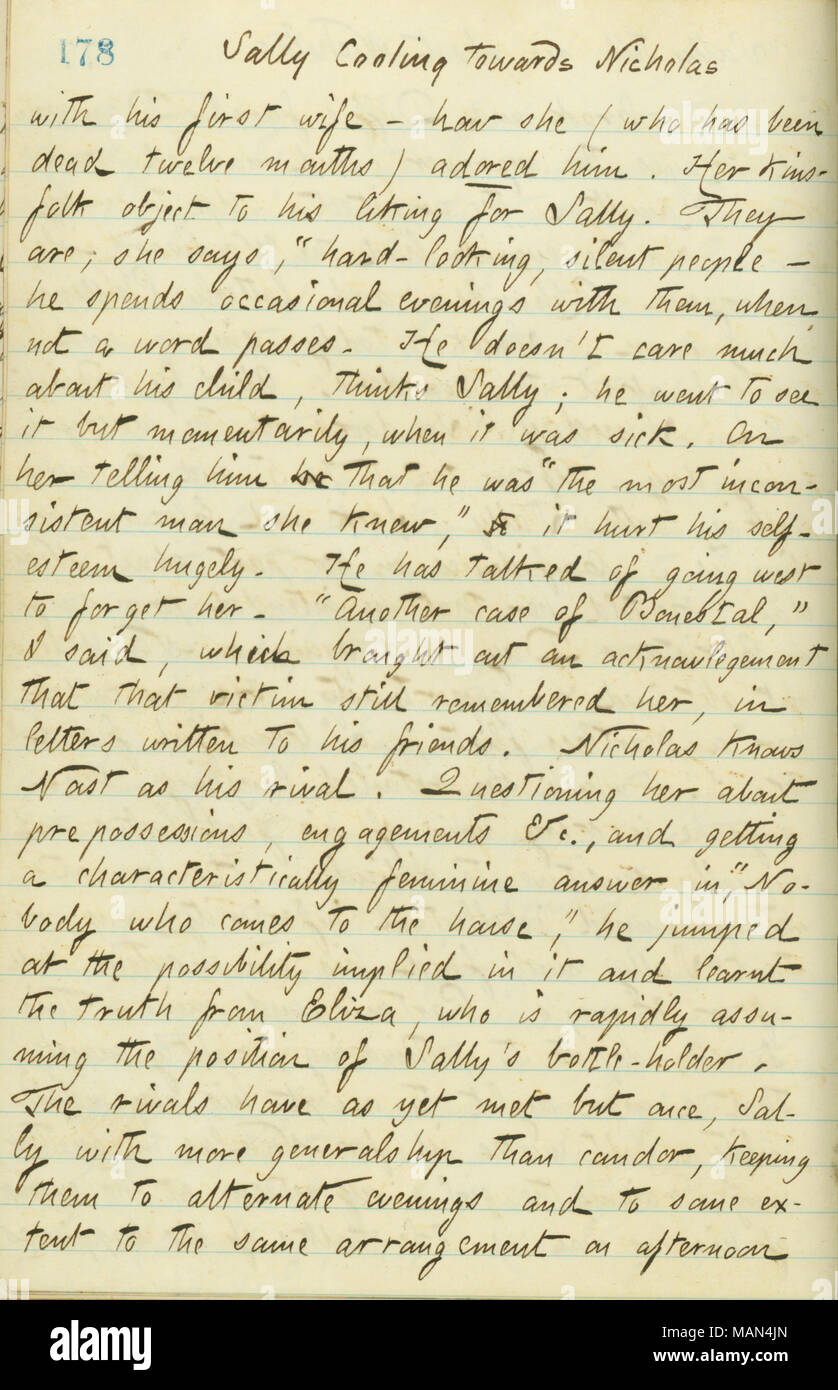 178 Sally Cooling towards Nicholas
with his first wife — how she (who has been
dead twelve months) adored him. Her kins-
folk object to his liking for Sally. They
are, she says, "hard-looking, silent people —
he spends occasional evenings with them, when
not a word passes. He doesn't care much
about his child, thinks Sally; he went to see
it but momentarily, when it was sick. On
her telling him he that he was "the most incon-
sistent man she knew," it hurt his self-
esteem hugely. He has talked of going west
to forget her. "Another case of Bonestal,"
I said, which brought out an acknowlegement
that that victim still remembered her, in
letters written to his friends. Nicholas knows
Nast as his rival. Questioning her about
prepossessions, engagements &c., and getting
a characteristically feminine answer in, "No-
body who comes to the house," he jumped
at the possibility implied in it and learnt
the truth from Eliza, who is rapidly assu-
ming the position of Sally's bottle-holder.
The rivals have as yet met but once, Sal-
ly with more generalship than candor, keeping
them to alternate evenings and to some ex-
tent to the same arrangement on afternoon
alamy
Image ID: MAN4JN
www.alamy.com